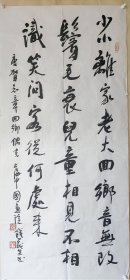 少小離家老大回鄉音無改
鬢毛衰兒童相見不相
識笑問客從何處來
唐賀知章回鄉偶書